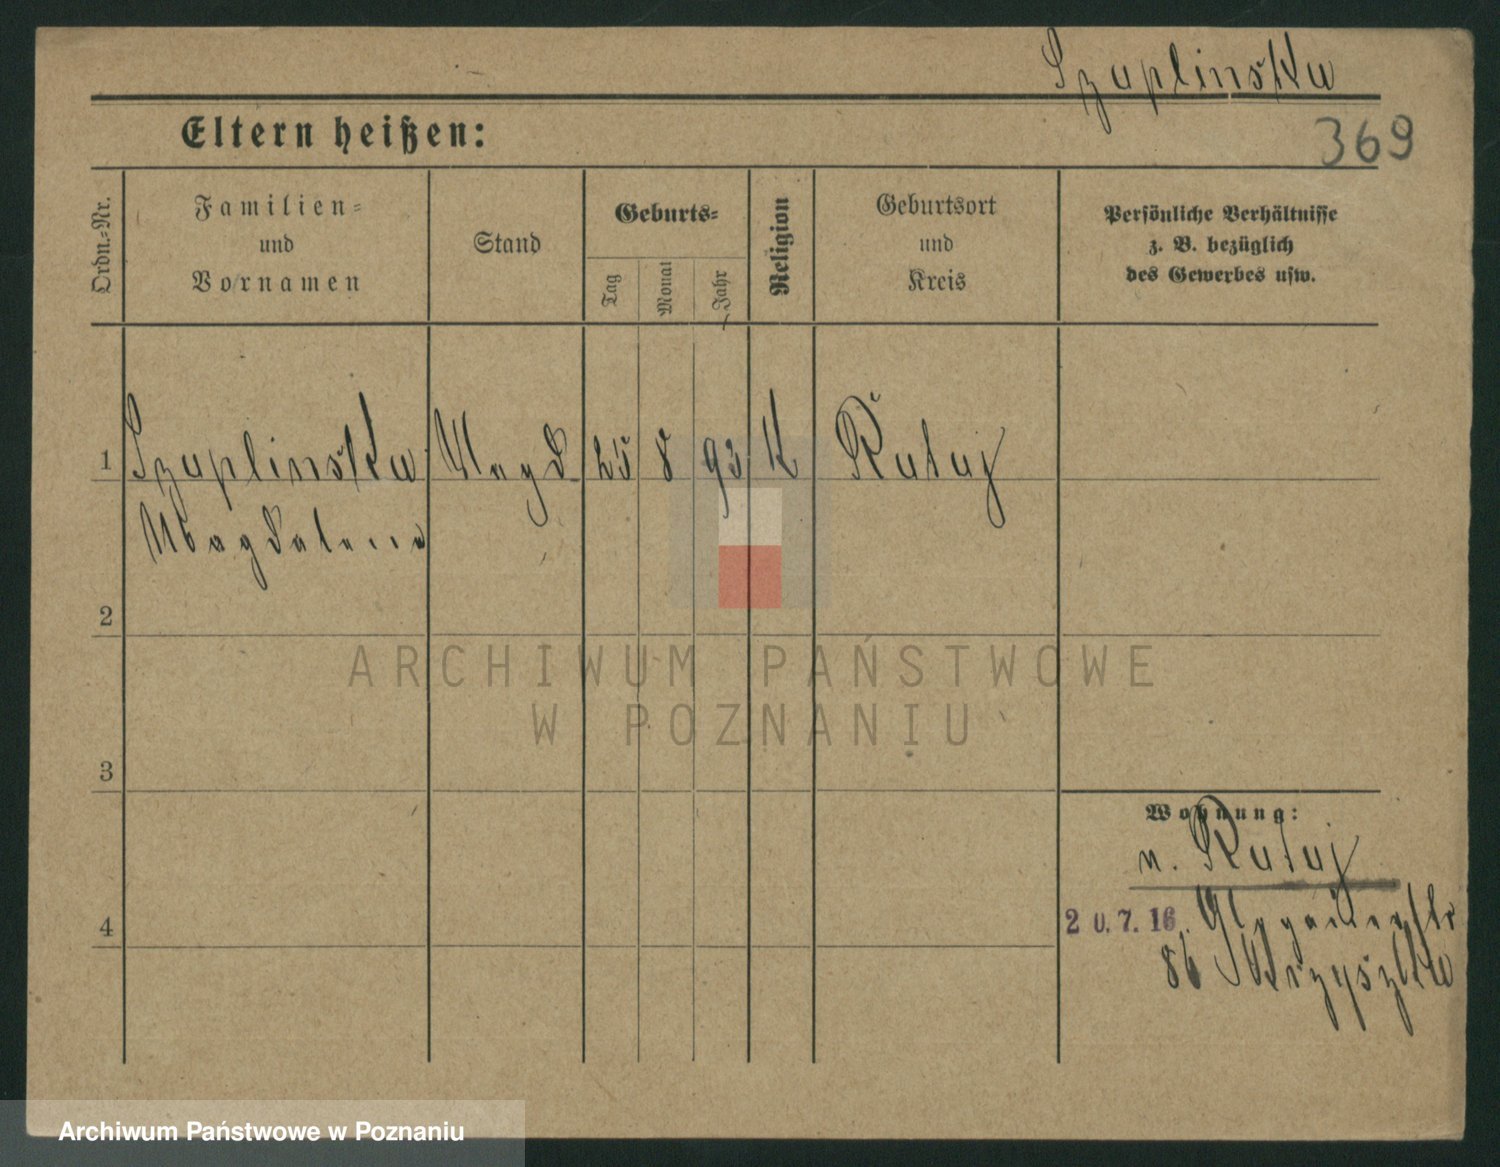 Szaplinska
369
Eltern heißen:
Ordn.-Nr.
Familien-
und
Vornamen
Stand
Geburts-
Tag
Monat
Jahr
Religion
Geburtsort
und
Kreis
Persönliche Verhältnisse
z. B. bezüglich
des Gewerbes usw.
1 Szaplinska Magd. 25 8 93 K Rataj
Magdalena
2
3
4
Wohnung:
n. Rataj
20.7.16.
86
ARCHIWUM PAŃSTWOWE
W POZNANIU
Archiwum Państwowe w Poznaniu